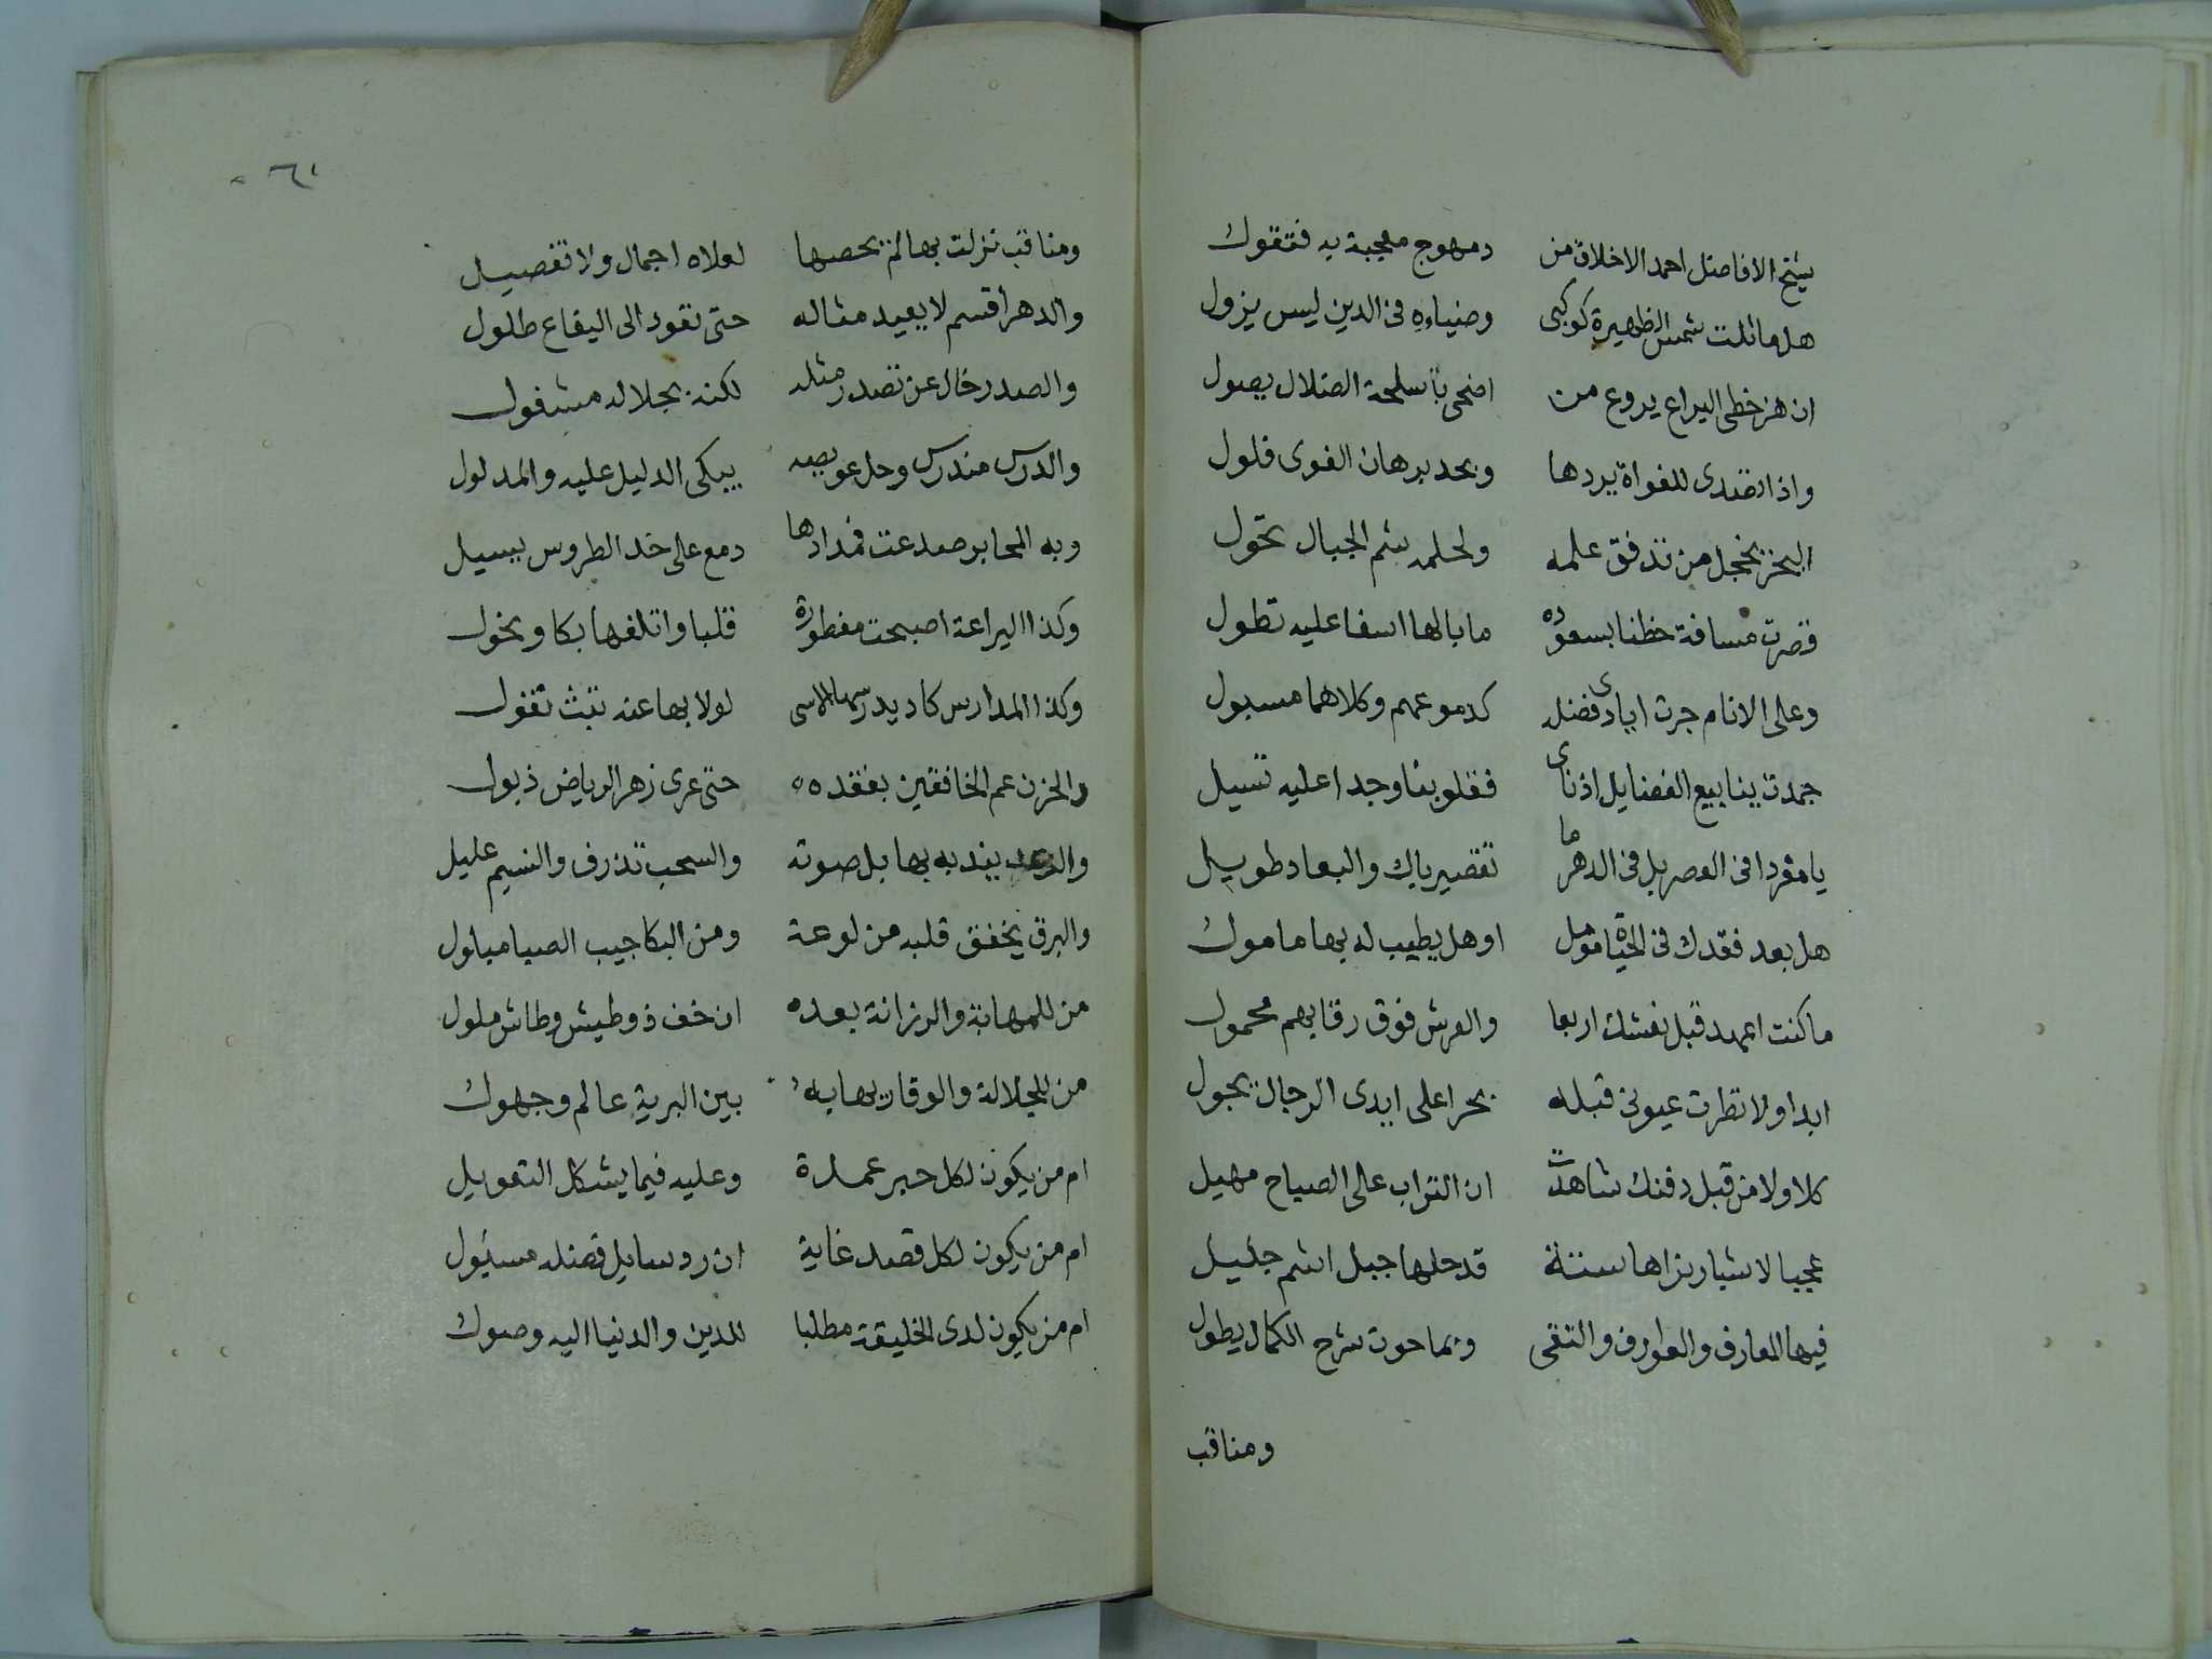 شيخ الافاضل احمد الاخلاق من دمهوج معجبة به فتقول
هل ماثلت شمس الظهيرة كوكبى وضياءه فى الدين ليس يزول
ان هز خطى اليراع يروع من اضحى باسلحة الضلال يصول
واذا تصدى للغواة يردها وبحد برهان الغوى فلول
البحر يخجل من تدفق علمه ولحلمه شم الجبال تحول
قصرت مسافة حظنا بسعوده ما بالها اسفا عليه تطول
وعلى الانام جرت ايادى فضله كدموعهم وكلاهما مسبول
جمدت ينابيع الفضايل اذ ناى فقلوبنا وجدا عليه تسيل
يا مفردا فى العصر بل فى الدهر ما تقصير باك والبعاد طويل
هل بعد فقدك فى الحياة مومل او هل يطيب له بها مامول
ما كنت اعهد قبل نعشك اربعا والعرش فوق رقابهم محمول
ابدا ولا نظرت عيونى قبله بحرا على ايدى الرجال يجول
كلا ولا من قبل دفنك شاهدت ان التراب على الصباح مهيل
عجبا لاشبار نراها ستة قد حلها جبل اشم جليل
فيها المعارف والعوارف والتقى وبما حوت شرح الكمال يطول
ومناقب
٦١
ومناقب نزلت بها لم يحصها لعلاه اجمال ولا تفصيل
والدهر اقسم لا يعيد مثاله حتى تقود الى البقاع طلول
والصدر خال عن تصدر مثله لكنه بجلاله مشغول
والدرس مندرس وحل عويصه يبكى الدليل عليه والمدلول
وبه المحابر صدعت فمدادها دمع على خد الطروس يسيل
وكذا اليراعة اصبحت مفطورة قلبا واتلفها بكا ونحول
وكذا المدارس كاد يدرسها الاسى لولا بها عنه تبث نقول
والحزن عم الخافقين بفقده حتى عرى زهر الرياض ذبول
والرعد يندبه بها بل صوته والسحب تذرف والنسيم عليل
والبرق يخفق قلبه من لوعة ومن البكا جيب الصبا مبلول
من للمهابة والرزانة بعده ان خف ذو طيش وطاش ملول
من للجلالة والوقار يهابه بين البرية عالم وجهول
ام من يكون لكل حبر عمدة وعليه فيما يشكل التعويل
ام من يكون لكل قصد غاية ان رد سايل فضله مسئول
ام من يكون لدى الخليقة مطلبا للدين والدنيا اليه وصول